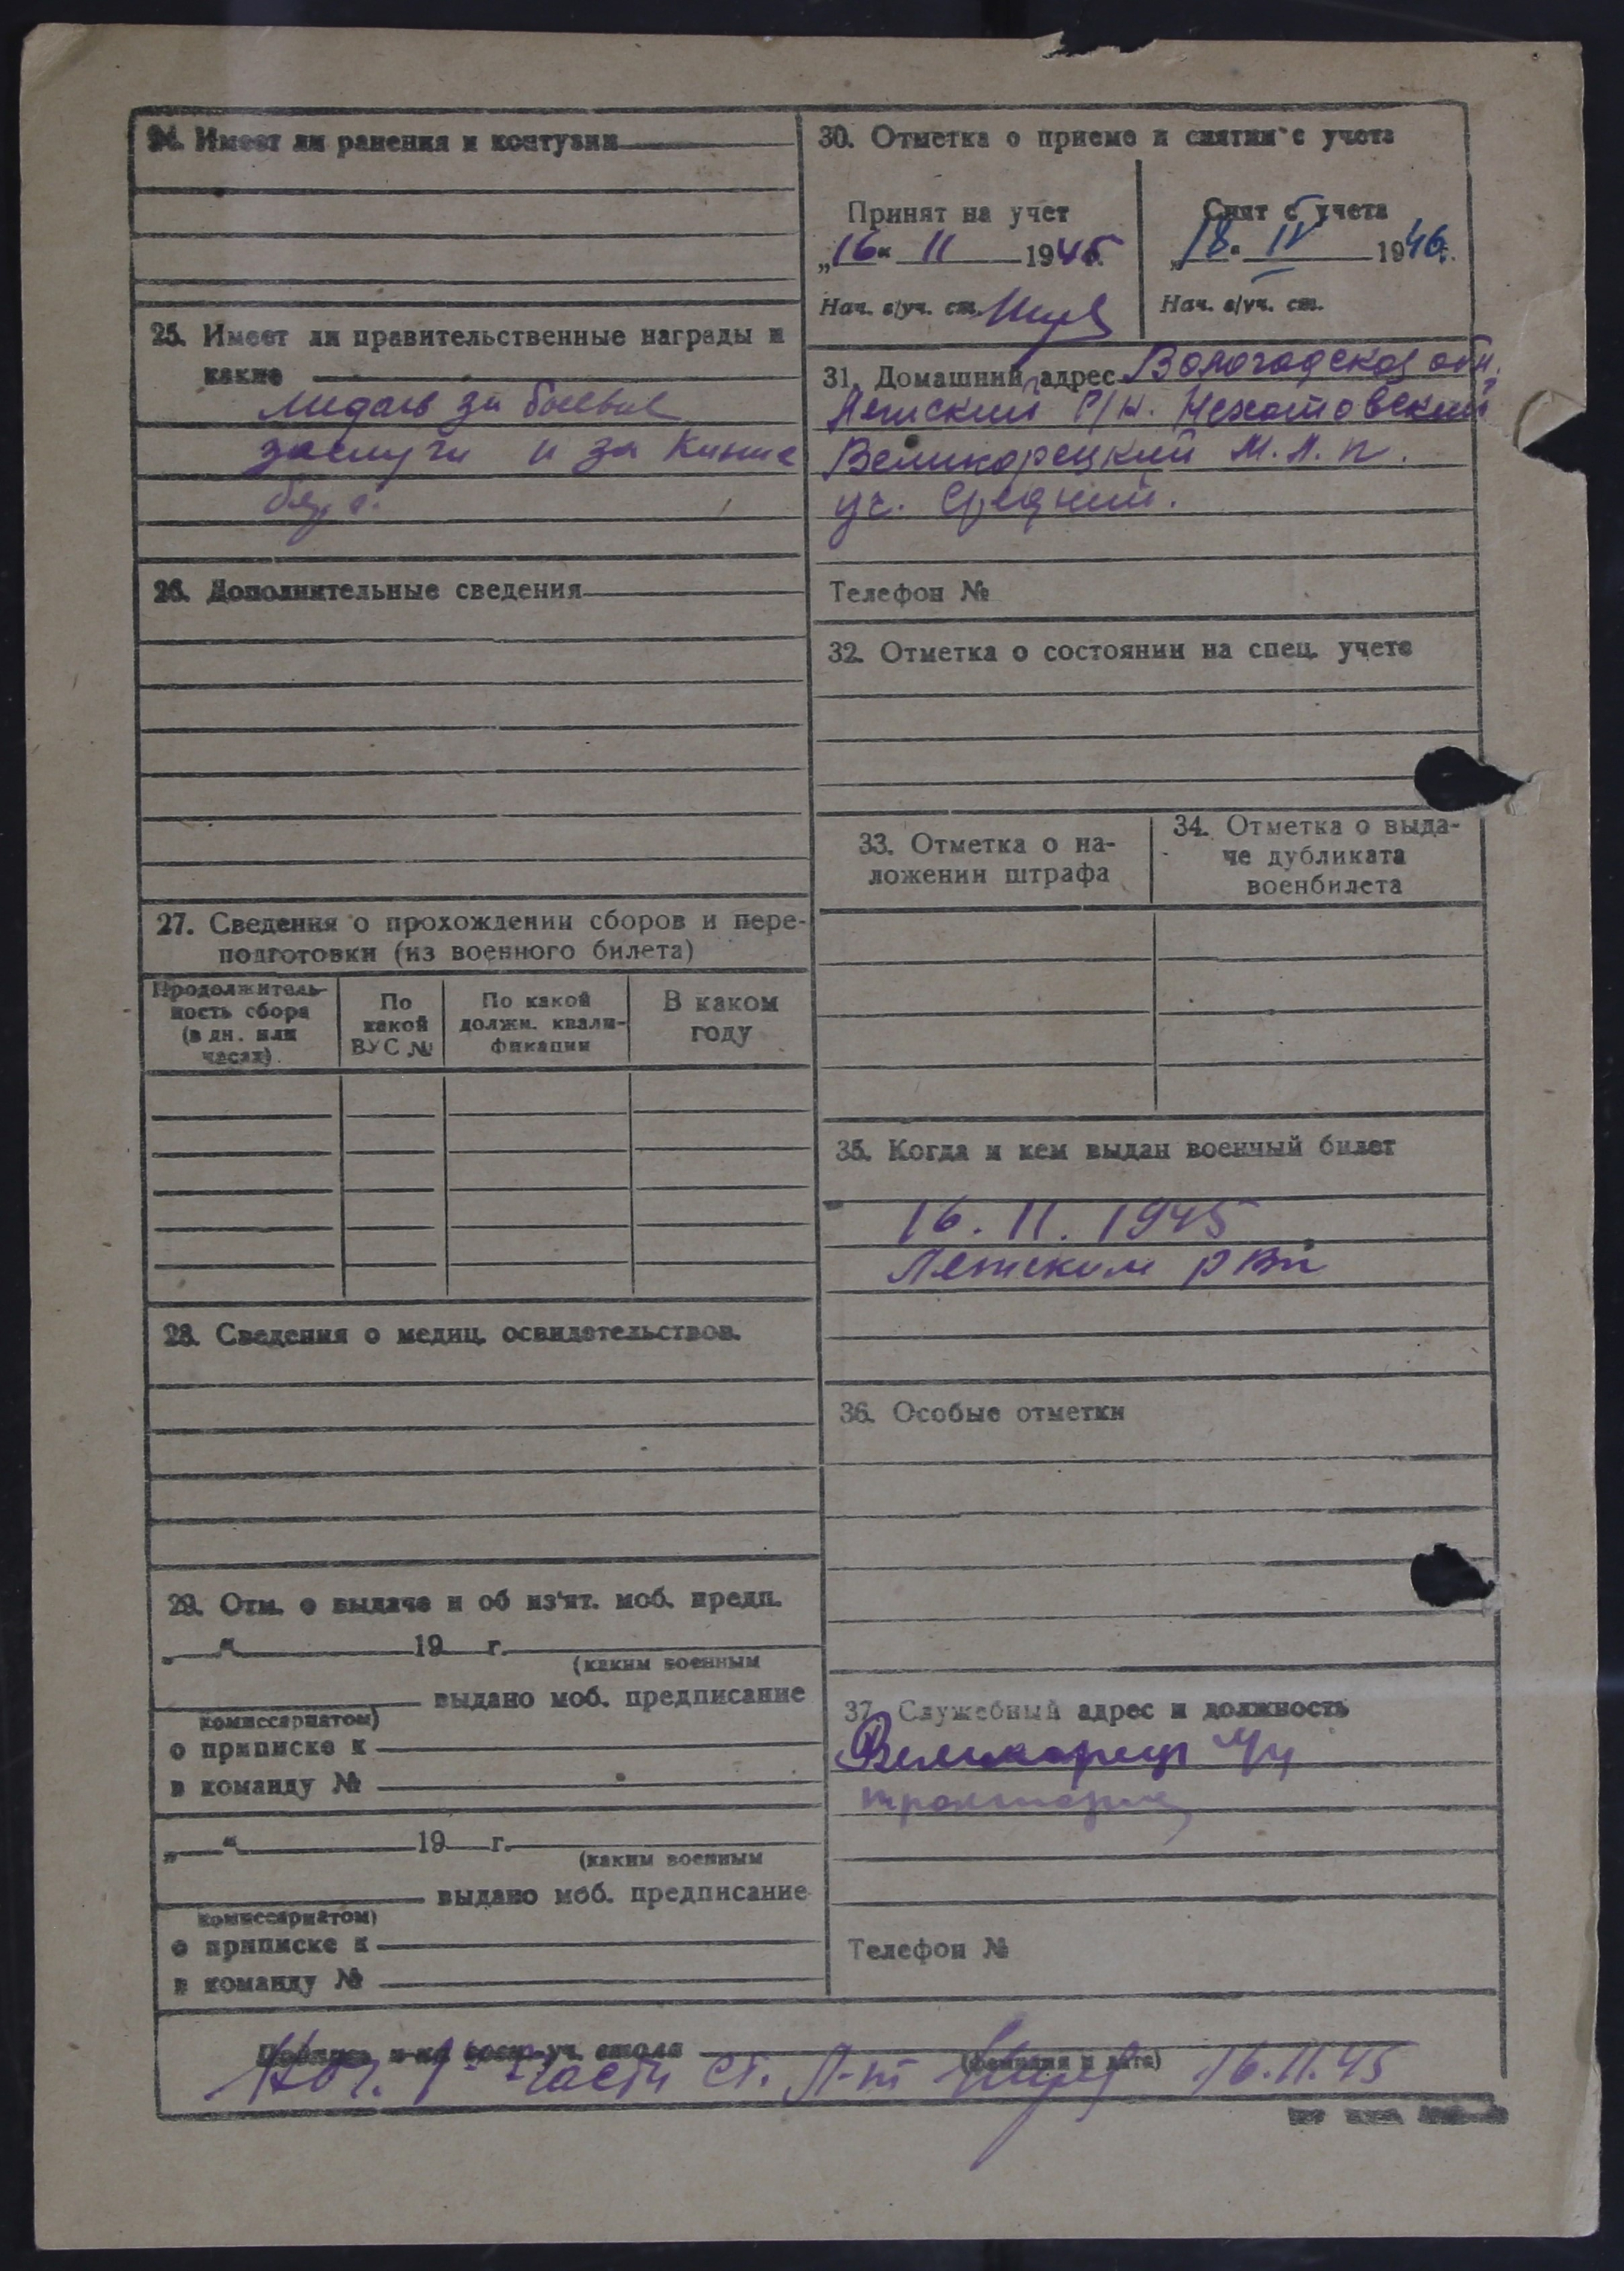 24. Имеет ли ранения и контузии
25. Имеет ли правительственные награды и
какие
медаль за боевые
заслуги и за
26. Дополнительные сведения
27. Сведения о прохождении сборов и пере-
подготовки (из военного билета)
Продолжитель-
ность сбора
(в дн. или
часах)
По
какой
ВУС №
По какой
должн. квали-
фикации
В каком
году
28. Сведения о медиц. освидетельствов.
29. Отм. о выдаче и об из'ят. моб. предп.
„ “ 19 г.
(каким военным
выдано моб. предписание
комиссариатом)
о приписке к
в команду №
„ “ 19 г.
(каким военным
выдано моб. предписание
комиссариатом)
о приписке к
в команду №
30. Отметка о приеме и снятии с учета
Принят на учет
„16“ 11 1945 г.
Нач. в/уч. ст.
Снят с учета
„18“ IV 1946 г.
Нач. в/уч. ст.
31. Домашний адрес Вологодская обл.
Летский р/н.
Великорецкий М.Л.п.
уч. Средний.
Телефон №
32. Отметка о состоянии на спец. учете
33. Отметка о на-
ложении штрафа
34. Отметка о выда-
че дубликата
военбилета
35. Когда и кем выдан военный билет
16.11.1945
Летским рвк
36. Особые отметки
37. Служебный адрес и должность
Телефон №
Подпись н-ка воен-уч. стола
(фамилия и дата)
Нач. 1й части ст. Л-т 16.11.45